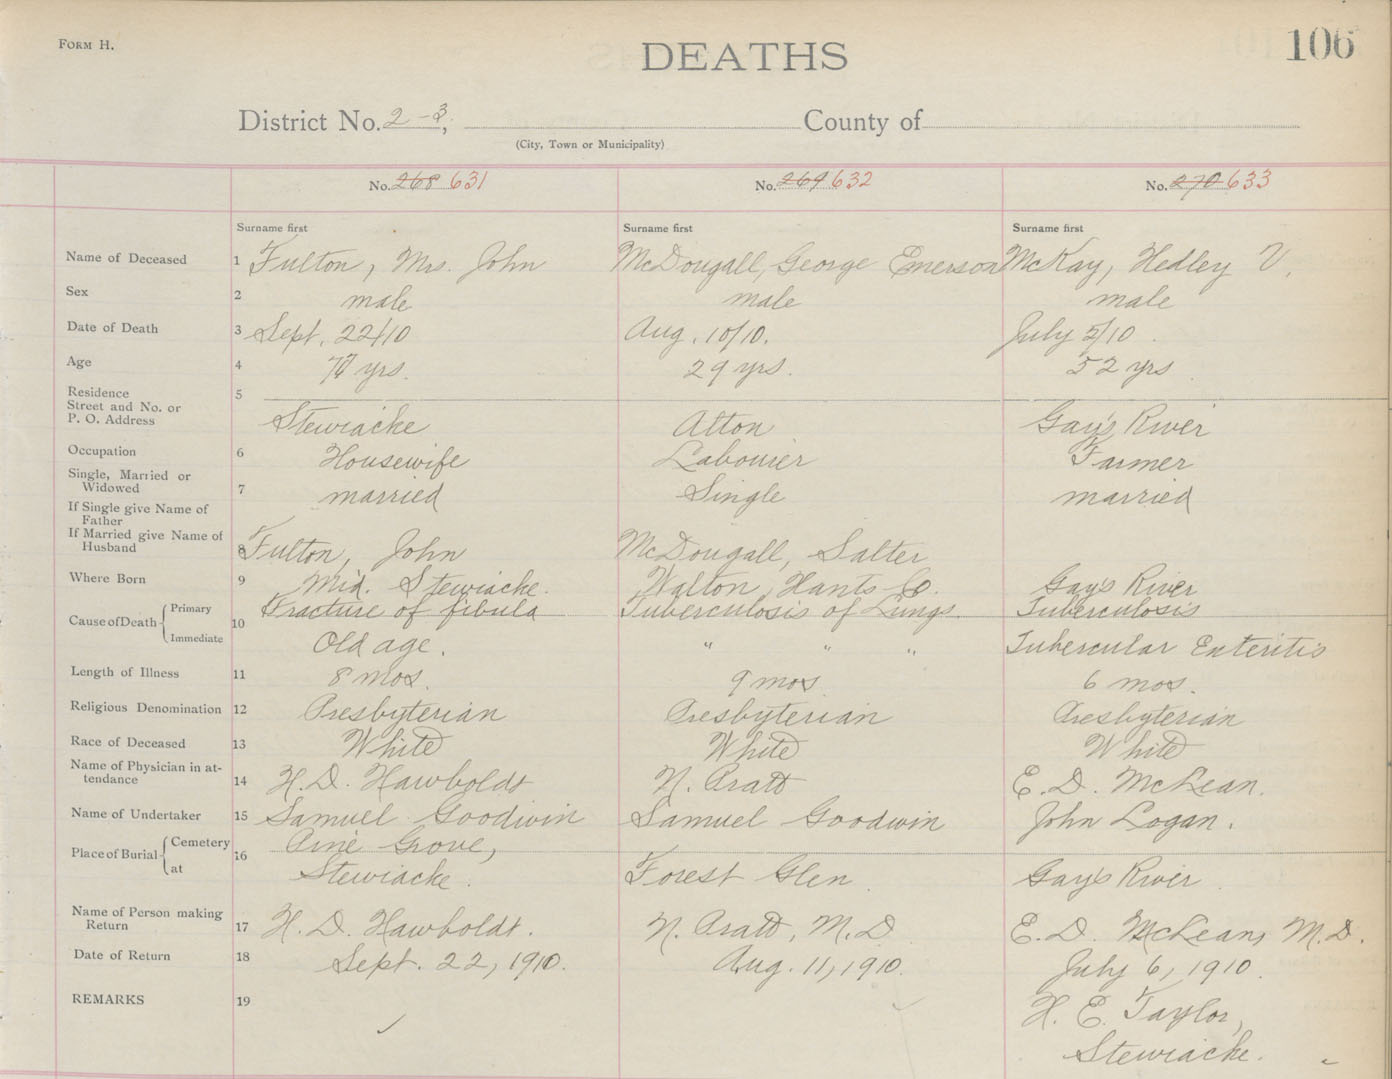 FORM H.
106
DEATHS
District No. 2-3, County of
(City, Town or Municipality)
No. 268 631 No. 269 632 No. 270 633
Surname first Surname first Surname first
Name of Deceased 1 Fulton, Mrs. John McDougall, George Emerson McKay, Hedley V.
Sex 2 male male male
Date of Death 3 Sept. 22/10 Aug. 10/10. July 5/10
Age 4 yrs. 29 yrs. 52 yrs
Residence 5
Street and No. or
P. O. Address Stewiacke Alton Gay's River
Occupation 6 Housewife Labourer Farmer
Single, Married or
Widowed 7 married Single married
If Single give Name of
Father
If Married give Name of
Husband 8 Fulton, John McDougall, Salter
Where Born 9 Mid. Stewiacke. Walton, Hants Co. Gay's River
Cause of Death Primary 10 Fracture of fibula Tuberculosis of Lungs. Tuberculosis
Immediate Old age. " " " Tubercular Enteritis
Length of Illness 11 8 mos. 9 mos. 6 mos.
Religious Denomination 12 Presbyterian Presbyterian Presbyterian
Race of Deceased 13 White White White
Name of Physician in at-
tendance 14 H.D. Hawboldt N. Pratt E. D. McLean.
Name of Undertaker 15 Samuel Goodwin Samuel Goodwin John Logan.
Place of Burial Cemetery 16 Pine Grove,
at Stewiacke. Forest Glen Gay's River
Name of Person making
Return 17 H. D. Hawboldt. N. Pratt, M.D E. D. McLean, M.D.
Date of Return 18 Sept. 22, 1910. Aug. 11, 1910. July 6, 1910.
REMARKS 19 H. E. Taylor,
Stewiacke.